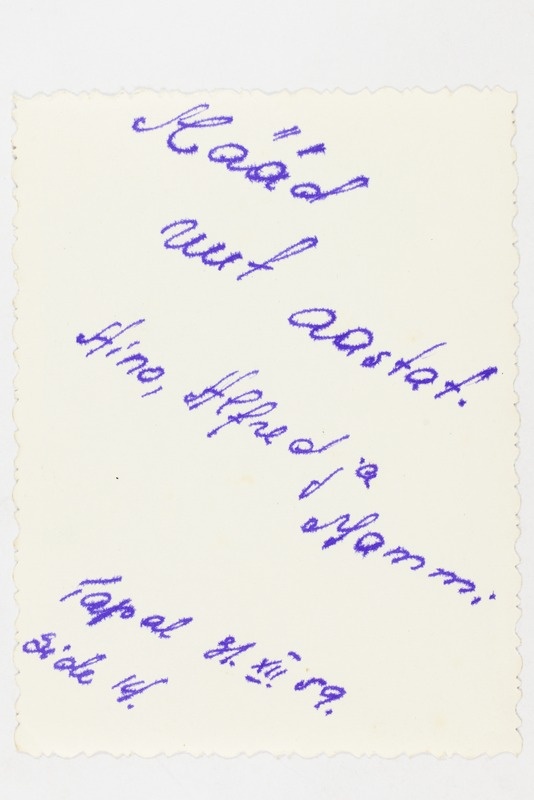 Hääd
uut
aastat.
Aino, Alfred ja
Mammi.
Tapal 31. XII 59.
Side 14.